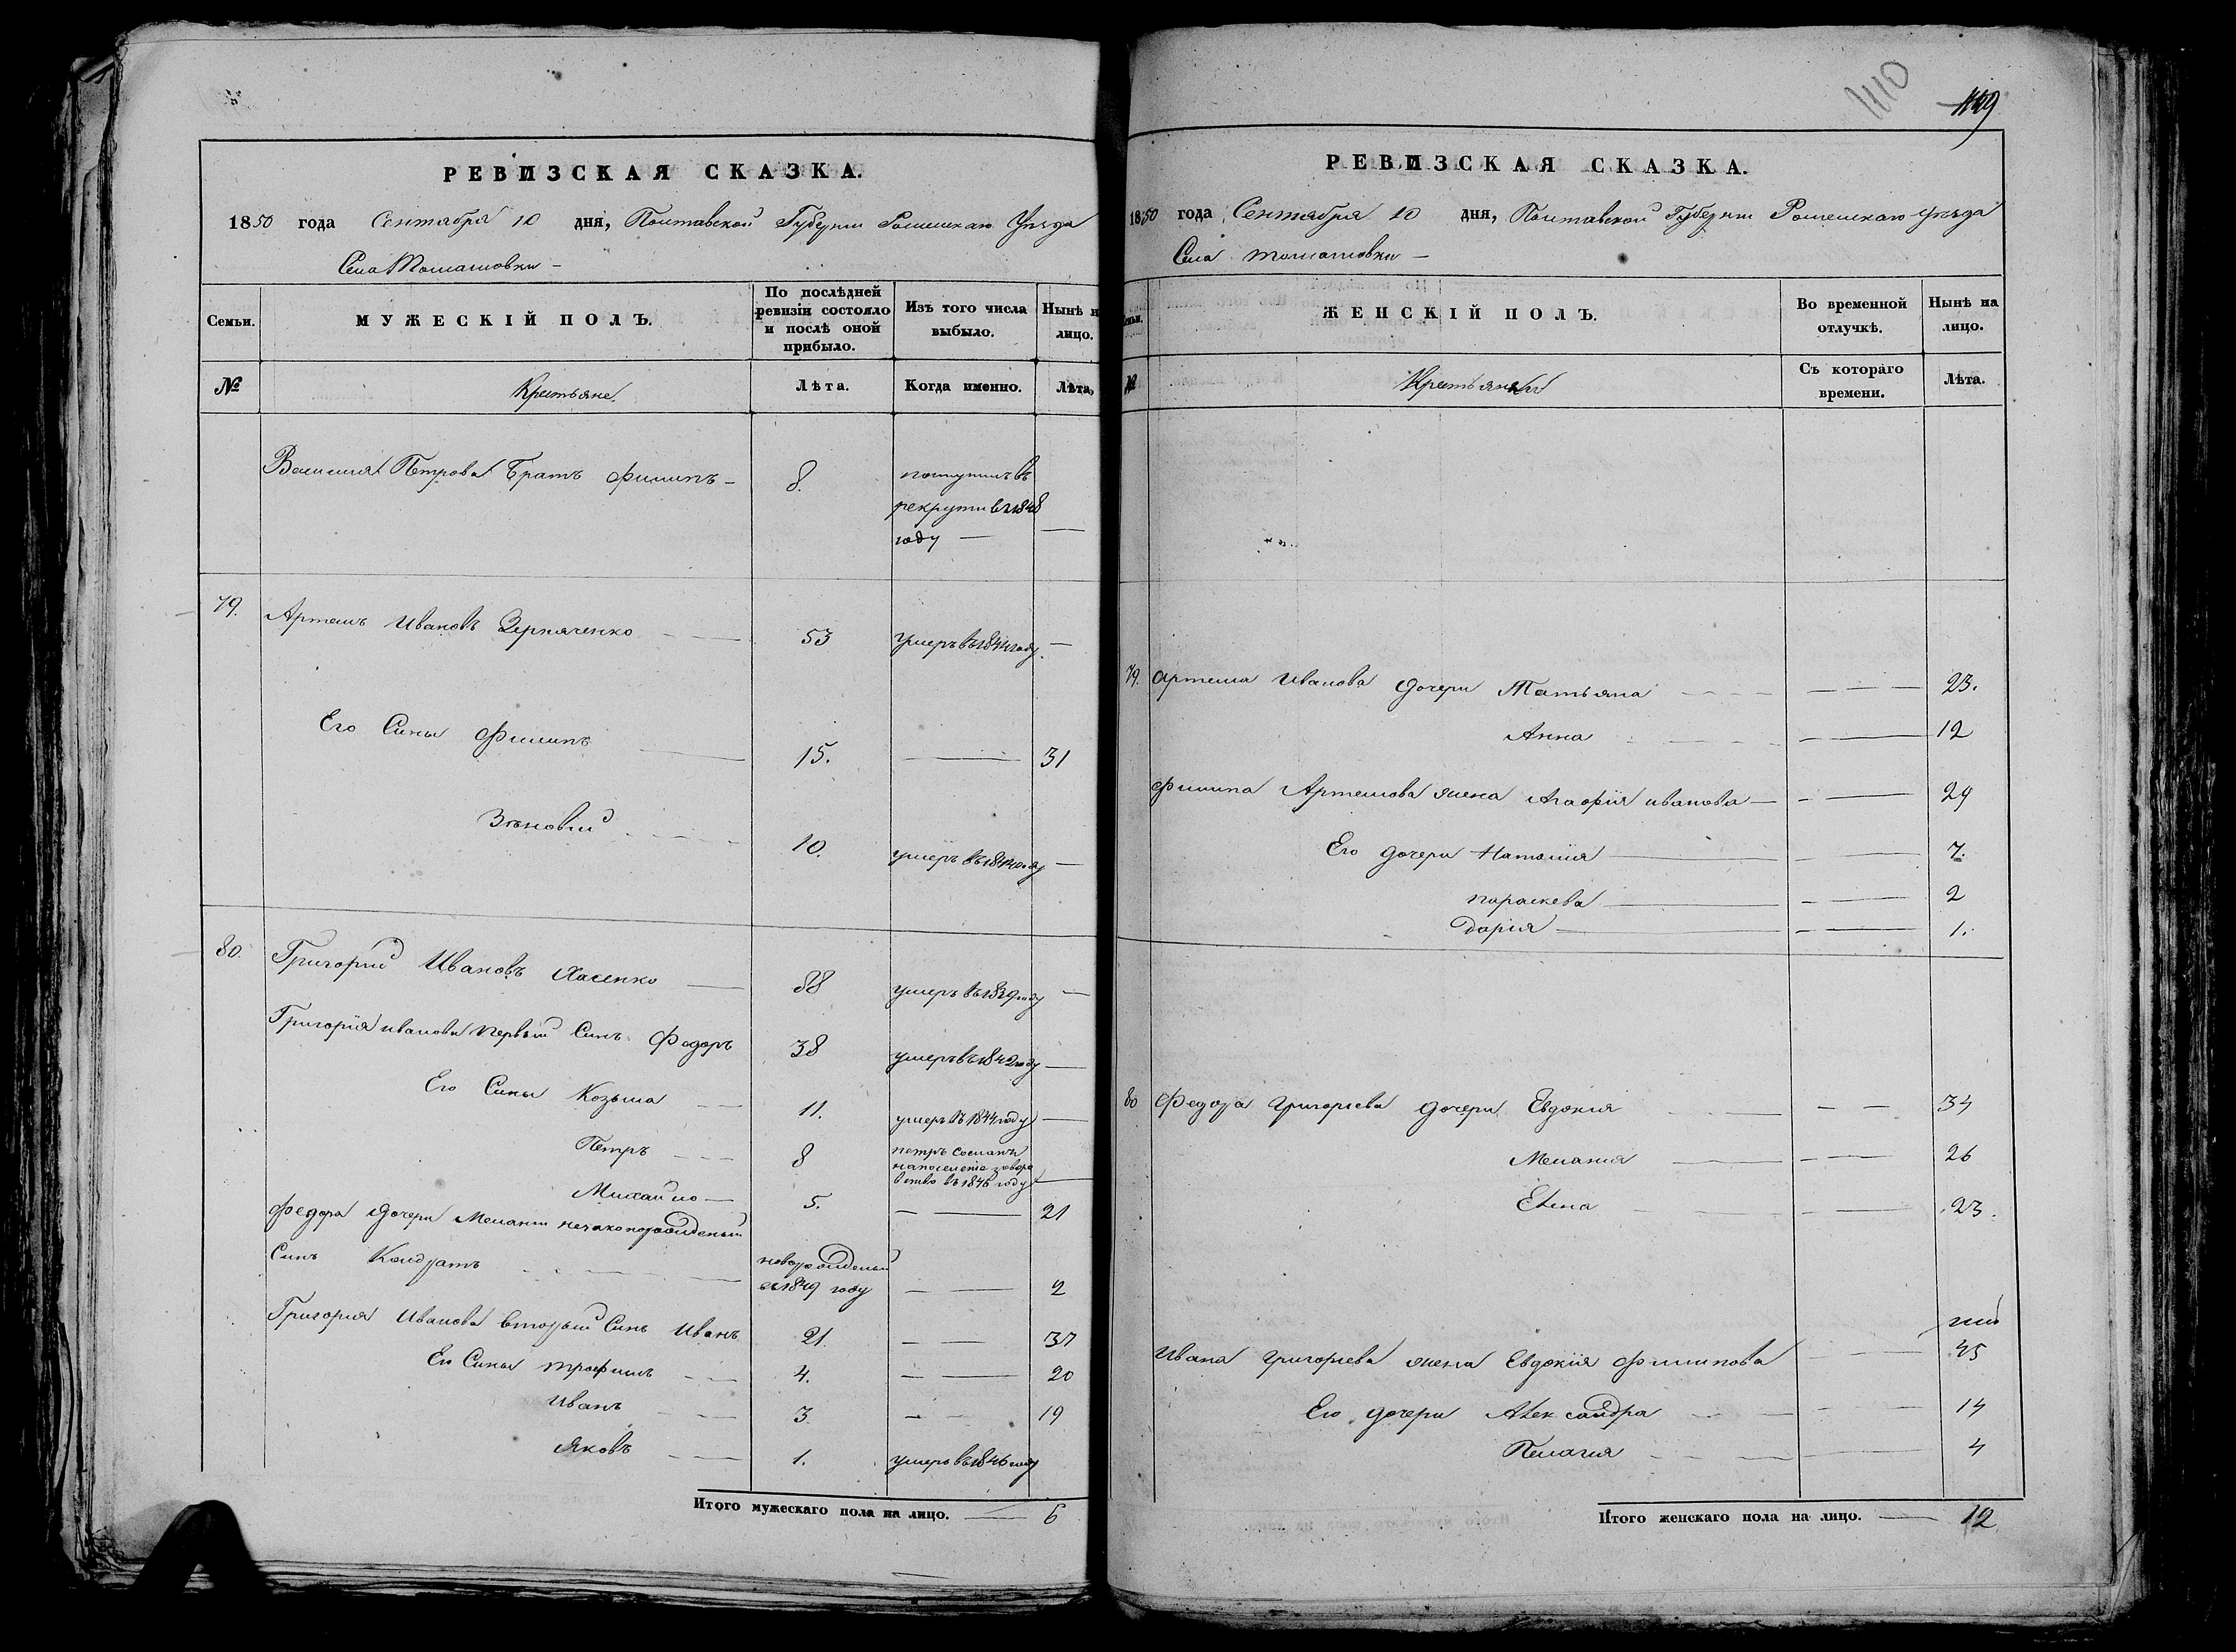 РЕВИЗСКАЯ СКАЗКА.
1850 года Сентября 10 дня, Полтавской Губерніи Роменскаго Уѣзда
Села Томашовки —
Семьи.
МУЖЕСКІЙ ПОЛЪ.
По послѣдней
ревизіи состояло
и послѣ оной
прибыло.
Изъ того числа
выбыло.
Нынѣ н
лицо.
№
Крестьяне.
Лѣта.
Когда именно.
Лѣта,
Василия Петрова Братъ Филипъ — 8. поступилъ въ
рекрути въ 1848
году — —
79. Артемъ Ивановъ 53 умеръ въ 1844 году. —
Его Сины Филипъ 15. — 31
Зѣновій 10. умеръ въ году —
80. Григорий Ивановъ Ласенко 88 умеръ въ 1839 году —
Григорія иванова первый Синъ Федоръ 38 умеръ въ 1842 году —
Его Сины Козьма 11. умеръ въ 1844 году —
Петръ 8 петръ сосланъ
на поселеніе
въ 1846 году —
Михайло — 5. — 21
Федора дочери Мелании незаконорожденый
Синъ Кондратъ новорожденый
въ 1849 году — 2
Григория Иванова вторый Синъ Иванъ 21. — 37
Его Сины трофимъ 4. — 20
Иванъ 3. — 19
Яковъ 1. умеръ въ 1846 году
Итого мужескаго пола на лицо. — 6
1110
119
РЕВИЗСКАЯ СКАЗКА.
1850 года Сентября 10 дня, Полтавской Губерніи Роменскаго уѣзда
Села томашовки —
ЖЕНСКІЙ ПОЛЪ.
Во временной
отлучкѣ.
Нынѣ на
лицо.
№
Крестьянки
Съ котораго
времени.
Лѣта.
79. Артема Иванова дочери Татьяна — 23.
Анна — 12
Филипа Артемова жена Агафія иванова — 29
Его дочери Наталия — 7.
параскева — 2
Дарія — 1.
80 Федора Григорьева дочери Евдокія — 34
Мелания — 26
Елена — 23.
Ивана Григорьева жена Евдокія Филипова — 45
Его дочери Александра — 14
Пелагия — 4
Итого женскаго пола на лицо. — 12